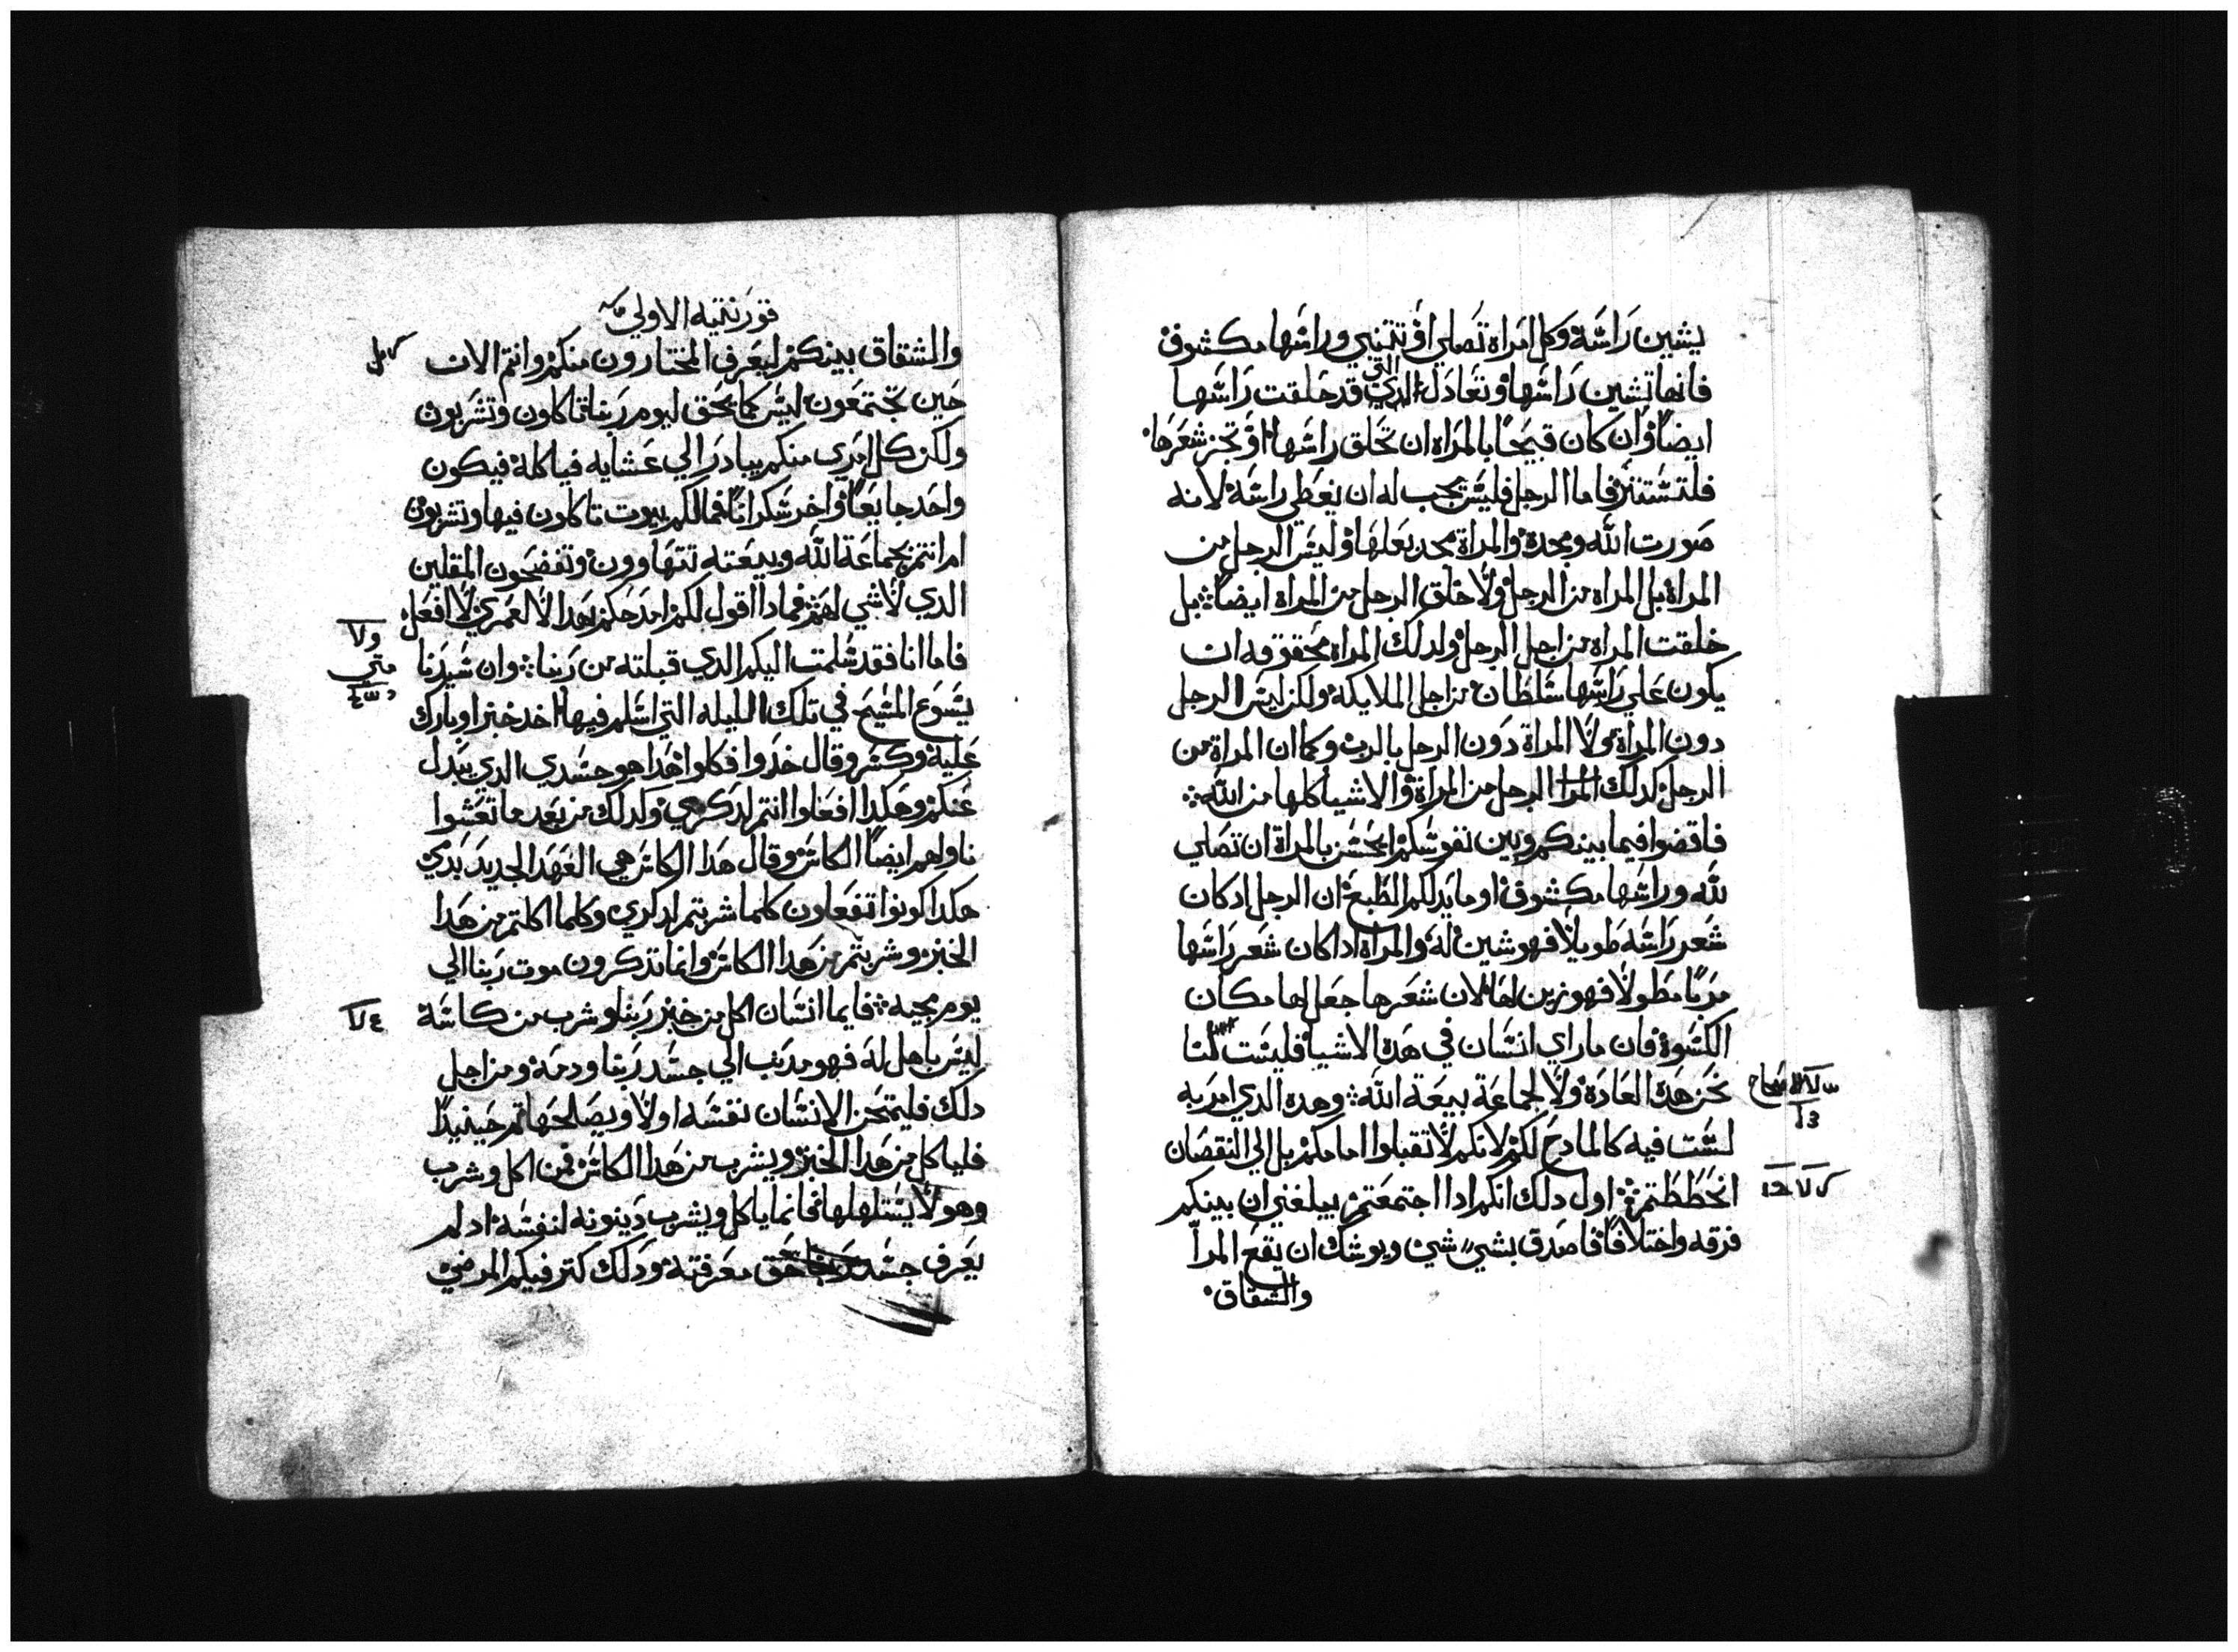 يشين راسه وكل امراه تصلي او تتنبي وراسها مكشوف
فانها تشين راسها وتعادل الذي التي قد حلقت راسها
ايضا وان كان قبيحا بالمراه ان تحلق راسها او تجز شعرها
فلتستتر فاما الرجل فليس يجب له ان يغطي راسه لانه
صورت الله ومجده والمراة مجد بعلها وليس الرجل من
المراة بل المراه من الرجل ولا خلق الرجل من المراة ايضا بل
خلقت المراه من اجل الرجل ولدلك المراه محقوقه ان
يكون علي راسها سلطان من اجل الملايكة ولكن ليس الرجل
دون المراة ولا المراة دون الرجل بالرب وكما ان المراة من
الرجل كدلك المرا الرجل من المراة والاشيا كلها من الله
فاقضوا فيما بينكم وبين نفوسكم ايحسن بالمراة ان تصلي
لله وراسها مكشوف او ما يدلكم الطبع ان الرجل ادكان
شعر راسه طويلا فهو شين له والمراة اداكان شعر راسها
مربا مطولا فهو زين لها لان شعرها جعل لها مكان
الكسوة فان ماراي انسان في هده الاشيا فليست لنا
نحن هده العادة ولا لجماعة بيعة الله وهده الدي امر به
لست فيه كالمادح لكم لانكم لا تقبلوا امامكم بل الي النقصان
انحططتم اول دلك انكم ادا اجتمعتم يبلغني ان بينكم
فرقه واختلافا فاصدق بشي شي ويوشك ان يقع المرا
والشقاق
قورنتيه الاولي
والشقاق بينكم ليعرف المختارون منكم وانتم الان
حين تجتمعون ليس كما يحق ليوم ربنا تاكلون وتشربون
ولكن كل امري منكم يبادر الي عشايه فياكله فيكون
واحد جايعا واخر سكرانا فمالكم بيوت تاكلون فيها وتشربون
ام انتم بجماعة الله وبيعته تتهاوون وتفضحون المقلين
الدي لا شي لهم فمادا اقول لكم امدحكم بهدا لا لعمري لا افعل
فاما انا فقد سلمت اليكم الدي قبلته من ربنا وان سيدنا
يسوع المسيح في تلك الليله التي اسلم فيها اخد خبزا وبارك
عليه وكسر وقال خدوا فكلوا هدا هو جسدي الدي يبدل
عنكم وهكدا افعلوا انتم لدكري وكدلك من بعد ما تعشوا
ناولهم ايضا الكاس وقال هدا الكاس هي العهد الجديد بدمي
هكدا كونوا تفعلون كلما شربتم لدكري وكلما اكلتم من هدا
الخبز وشربتم من هدا الكاس وانما تدكرون موت ربنا الي
يوم مجيه فايما انسان اكل من خبز ربنا وشرب من كاسه
ليس باهل له فهو مدنب الي جسد ربنا ودمه ومن اجل
دلك فليمتحن الانسان نفسه اولا ويصلحها تم حينيدا
فلياكل من هدا الخبز ويشرب من هدا الكاس فمن اكل وشرب
وهو لا يستاهلها فانما ياكل ويشرب دينونه لنفسه ادلم
يعرف جسد ربنا حق معرفته ودلك كتر فيكم المرضي